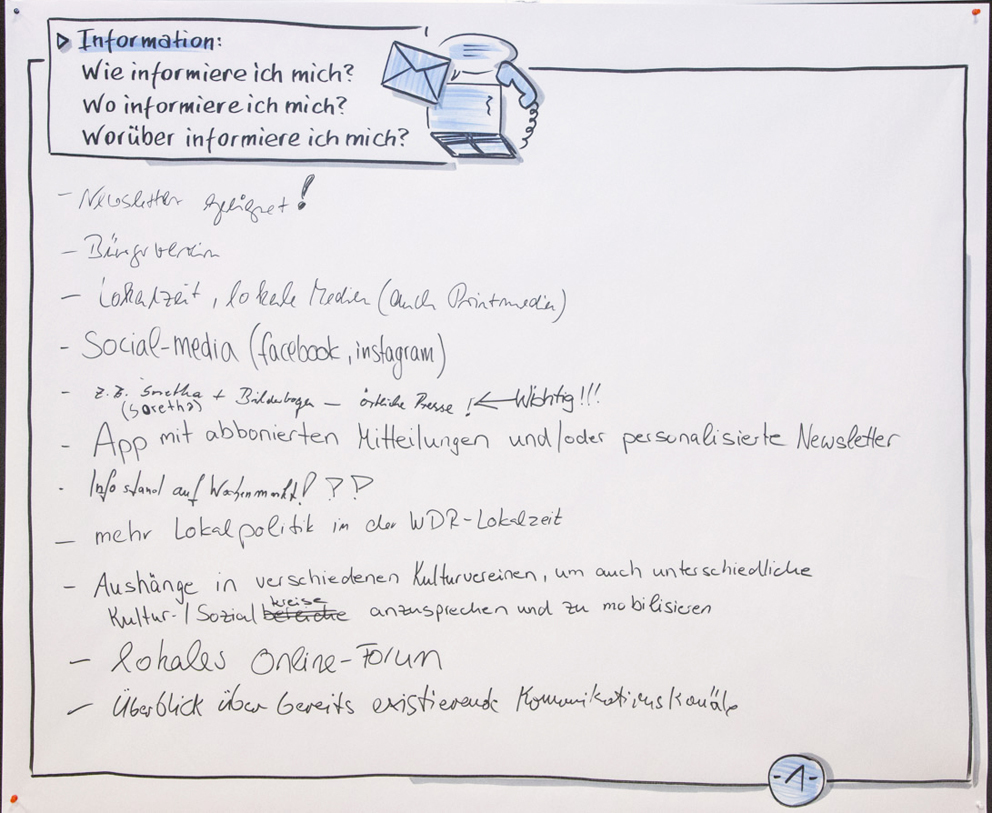 Information:
Wie informiere ich mich?
Wo informiere ich mich?
Worüber informiere ich mich?
- Newsletter geeignet!
- Bürgerverein
- Lokalzeit, lokale Medien (auch Printmedien)
- Social-media (facebook, instagram)
- z.B. + Bilderbogen – örtliche Presse! ← Wichtig!!!
- App mit abbonierten Mitteilungen und/oder personalisierte Newsletter
- Infostand auf Wochenmarkt! ??
- mehr Lokalpolitik in der WDR-Lokalzeit
- Aushänge in verschiedenen Kulturvereinen, um auch unterschiedliche
Kultur-/Sozialkreise anzusprechen und zu mobilisieren
- lokales Online-Forum
- Überblick über bereits existierende Kommunikationskanäle
-1-